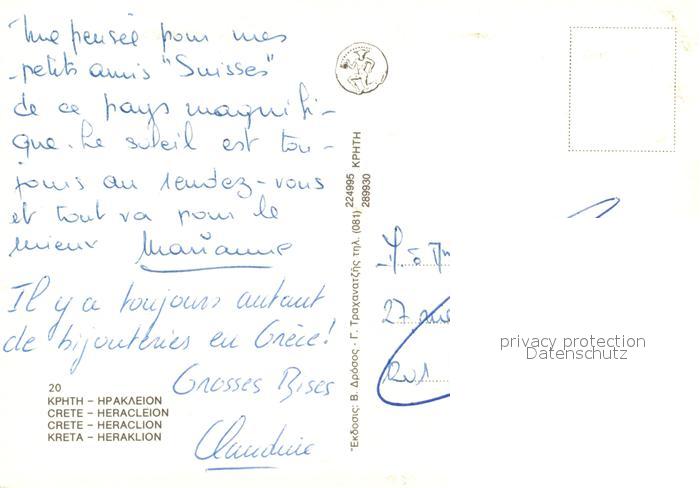 Une pensée pour mes
petits amis "Suisses"
de ce pays magnifi-
que. Le soleil est tou-
jours au rendez-vous
et tout va pour le
mieux Marianne
Il y a toujours autant
de bijouteries en Grèce!
Grosses Bises
Claudine
20
ΚΡΗΤΗ – ΗΡΑΚΛΕΙΟΝ
CRETE – HERACLEION
CRETE – HERACLION
KRETA – HERAKLION
Ἔκδοσις: Β. Δρόσος - Γ. Τραχανατζῆς τηλ. (081) 224995 ΚΡΗΤΗ
289930
27
privacy protection
Datenschutz